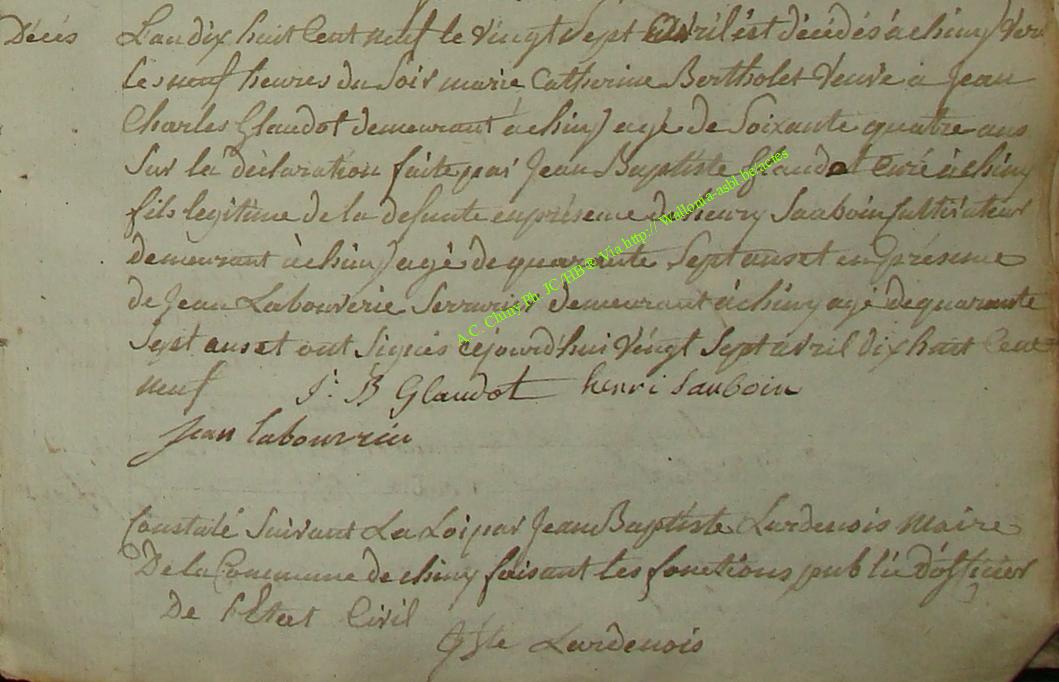 Décés L'an dix huit Cent neuf le vingt Sept avril est décédés à chiny vers
les neuf heures du Soir marie Catherine Bertholet veuve a Jean
Charles Glaudot demeurant à chiny agé de Soixante quatre ans
Sur la déclaration faite par Jean Baptiste Glaudot curé à chiny
fils legitime de la defunte en présense de henry Sauboin Cultivateur
demeurant à chiny agé de quarante Sept ans et en présense
de Jean Labouverie Serrurier demeurant à chiny agé de quarante
Sept ans et ont Signés cejourd'hui vingt Sept avril dix huit Cent
neuf J: B Glaudot henri Sauboin
Jean labouvrie
A.C. Chiny Ph. JC /HB ® Via http:// Wallonia-asbl.be/actes
Constaté Suivant La Loi par Jean Baptiste Lardenois Maire
De la Commune de chiny faisant les fonctions public d'officier
De l'Etat Civil
Lardenois